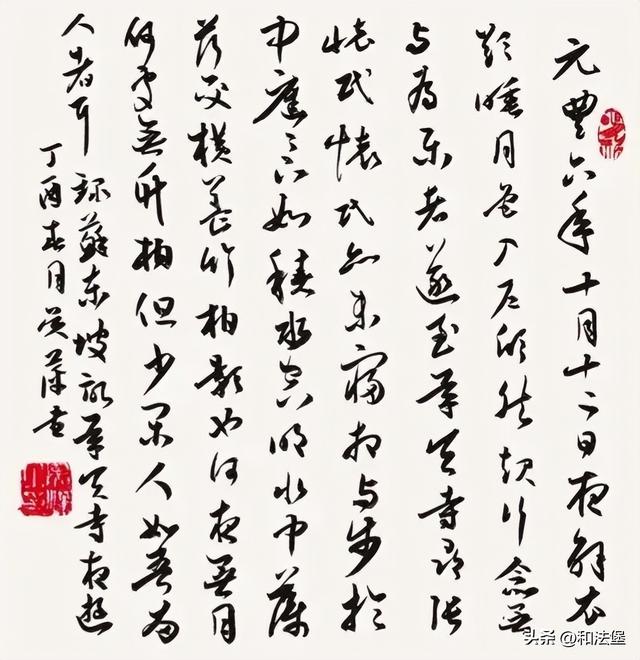 元豐六年十月十二日夜解衣
欲睡月色入户欣然起行念无
与为乐者遂至承天寺寻张
怀民怀民亦未寝相与步於
中庭庭下如積水空明水中藻
荇交横盖竹柏影也何夜无月
何处无竹柏但少闲人如吾两
人者耳
録蘇东坡記承天寺夜遊
丁酉春月
头条 @和法堡